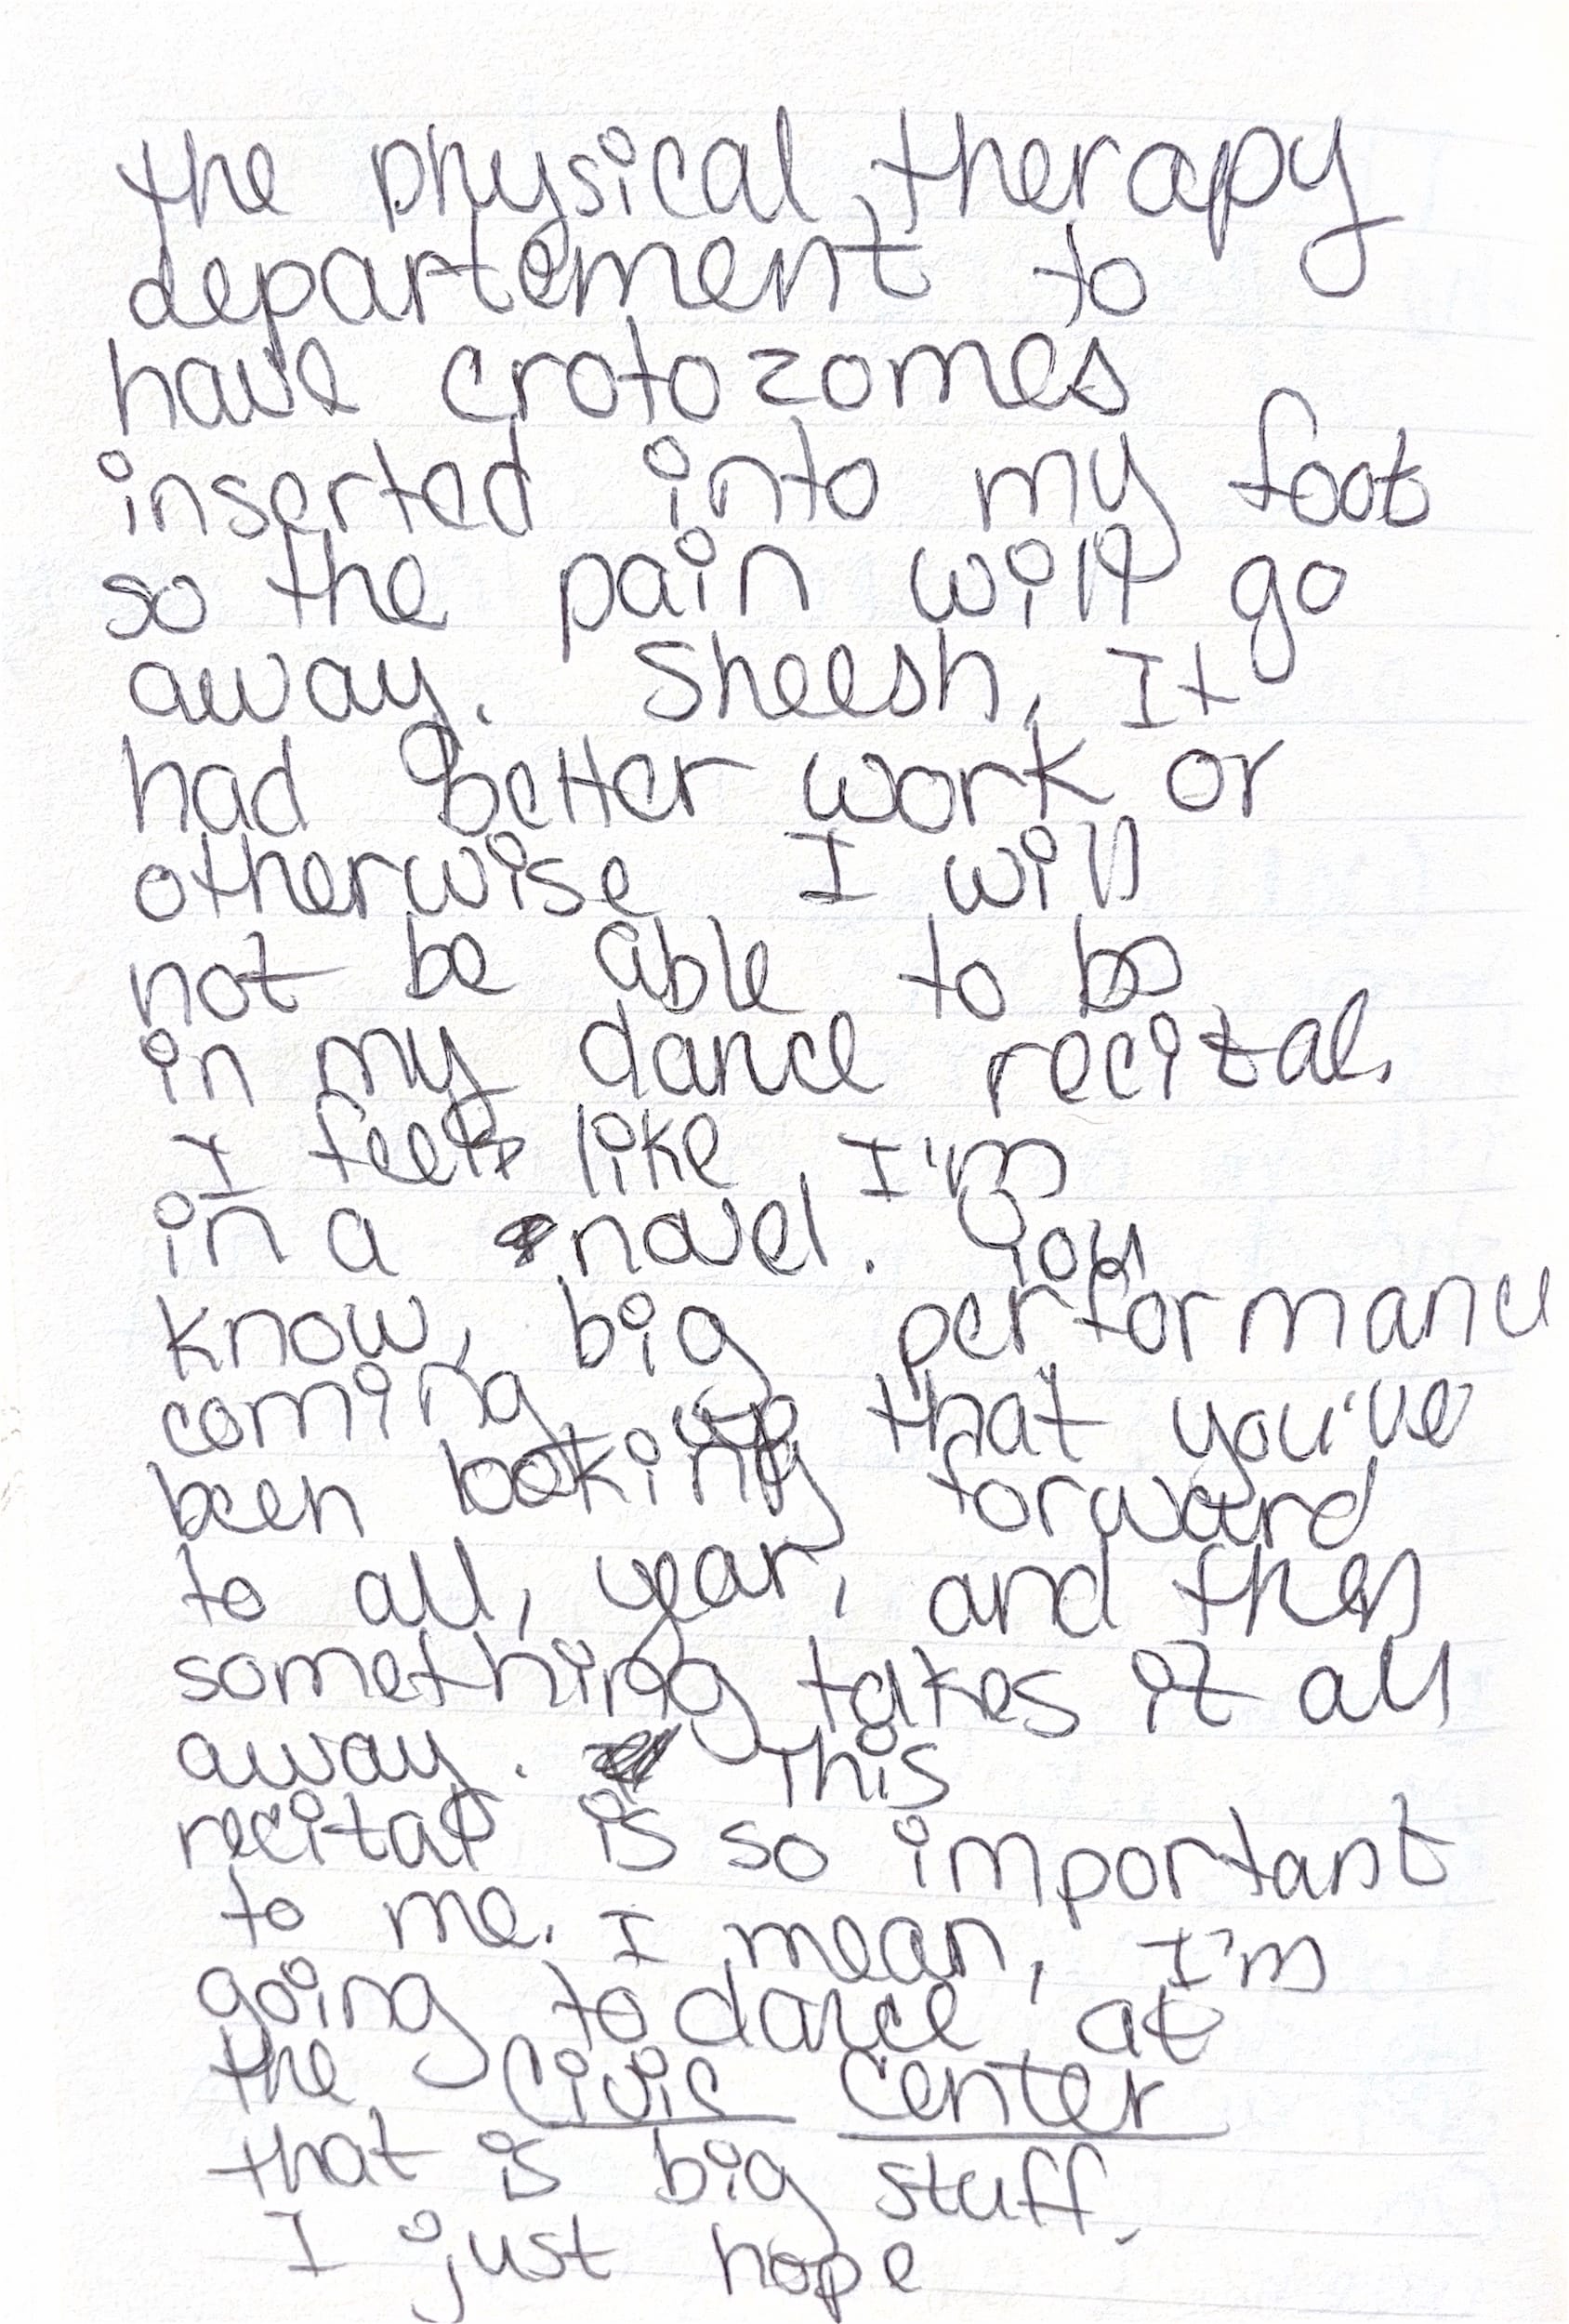 the physical therapy
departement to
have crotozomes
inserted into my foot
so the pain will go
away. Sheesh, It
had better work or
otherwise I will
not be able to be
in my dance recital.
I feel like I'm
in a novel. You
know, big performance
coming up that you've
been looking forward
to all, year, and then
something takes it all
away. This
recital is so important
to me. I mean, I'm
going to dance at
the Civic Center
that is big stuff.
I just hope